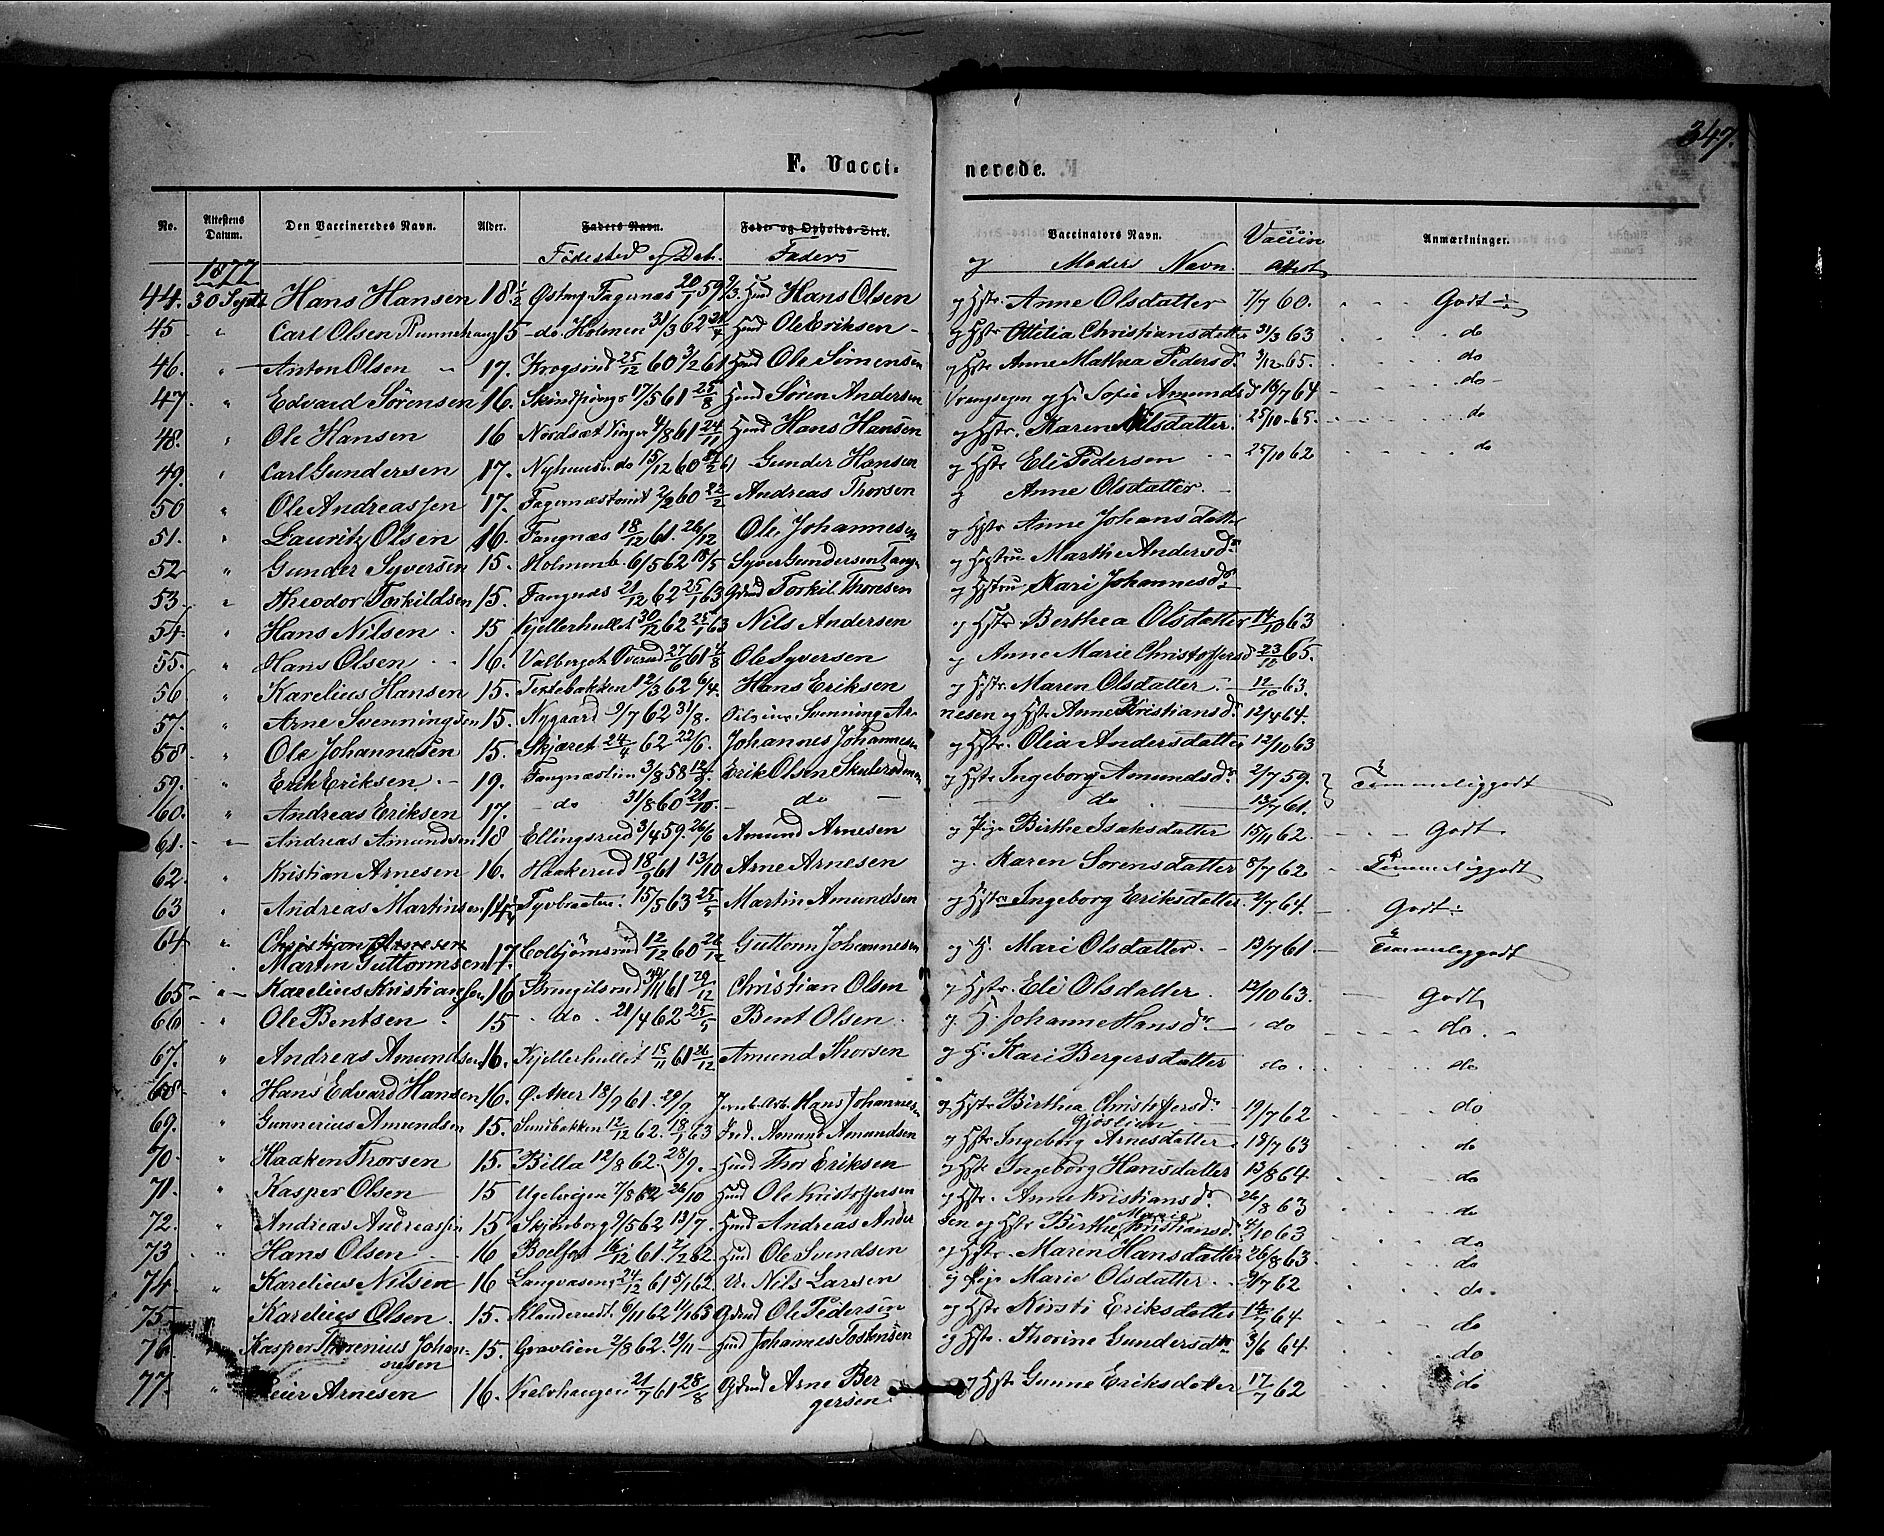 347.
F. Vacci- nerede.
No. Attestens Datum. Den Vaccineredes Navn. Alder. Faders Navn. Føde- og Opholds-Sted. Vaccinators Navn. Vaccin Anmærkninger.
Fødested og Dat. Faders og Moders Navn. attest
1877
44. 30 Septr Hans Hansen 18 1/2 Fagernæs 20/1 59 Hmd Hans Olsen og Hstr Anne Olsdatter 7/7 60. Godt
45 " Carl Olsen 15 do Holmen 31/3 62 Hmd Ole Eriksen og Hstr Christiansdatter 31/3 63 do
46. " Anton Olsen 17. 25/12 60 3/2 61 Hmd Ole Simensen og Hstr Anne Mathea Pedersd. 3/12 65. do
47. " Edvard Sørensen 16. 17/5 61 25/8 Hmd Søren Andersen og H. Sofie Amundsd 18/7 64 do
48. " Ole Hansen 16 Nordsæt Vinger 4/8 61 24/11 Hmd Hans Hansen og Hstr. Karen Nilsdatter. 25/10 65. do
49. " Carl Gundersen 17. do 15/12 60 Gunder Hansen og Hstr Eli Pedersen 25/10 62 do
50 " Ole Andreassen 17. 2/2 60 22/2 Andreas Thorsen og Anne Olsdatter.
51. " Lauritz Olsen 16. Tangnæs 18/12 61. 26/12 Ole Johannesen og Hstr Anne Johansdatter
52 " Gunder Syversen 15. 6/5 62 18/5 Syver Gundersen og Hustru Marthe Andersdr
53. " Theodor Torkildsen 15. Tangnæs 21/12 62 25/1 63 Torkil Thoresen og Hstru Kari Johannesdr
54 " Hans Nilsen 15 Kjellerhullet 30/12 62 25/1 63 Nils Andersen og Hstr Berthea Olsdatter 14/10 63
55. " Hans Olsen 16. 27/6 61 4/8 Ole Syversen og Anne Marie Christoffersd 23/10 65.
56 " Karelius Hansen 15. 12/3 62 6/4. Hans Eriksen og Hstr. Maren Olsdatter 12/10 63.
57. " Arne Svenningsen 15. Nygaard 9/7 62 31/8. Svenning Ar- nesen og Hstr Anne Kristiansdr 12/4 64.
58 " Ole Johannesen 15. Skjæret 24/4 62 22/6. Johannes Johannesen og Hstr. Olia Andersdatter 12/10 63
59. " Erik Eriksen 19. Tangnæslien 3/8 58 Erik Olsen og Hstr Ingeborg Amundsdr 2/7 59. Temmeliggodt
60. " Andreas Eriksen 17. do 31/8 60 21/10. do do 13/7 61.
61. " Andreas Amundsen 18 Ellingsrud 3/4 59. 26/6 Amund Arnesen og Pige Birthe Isaksdatter 15/11 62. Godt
62. " Kristian Arnesen 16. Haakerud 18/9 61 13/10 Arne Arnesen og Karen Sørensdatter 8/7 62 Temmeliggodt
63 " Andreas Martinsen 15/5 63 25/5 Martin Amundsen og Hstr. Ingeborg Eriksdatter 2/7 64. Godt
64 " Christian Arnesen
Martin Guttormsen 17. Colbjørnsrud 12/12 60 26/12 Guttorm Johannesen og H. Mari Olsdatter. 13/7 61 Temmeliggodt
65 " Karelius Kristiansen 16 61 29/12 Christian Olsen og Hstr. Eli Olsdatter. 12/10 63. Godt
66 " Ole Bentsen 15 do 21/4 62 25/5 Bent Olsen og H. Johanne Hansdr do do
67. " Andreas Amundsen 16. Kjellerhullet 15/11 61 26/12 Amund Thorsen og H. Kari Bergersdatter do do
68 " Hans Edvard Hansen 16. Ø. Aker 18/9 61. 29/9 Hans Johannesen og Hstr Birthea Christoffersdr 19/7 62 do
69. " Gunnerius Amundsen 15. Sundbakken 12/12 62. 18/1 63 Ind. Amund Amundsen og Hstr Ingeborg Arnesdatter 18/7 63 do
70. " Haaken Thorsen 15. Billa 12/8 62. 28/9. Hmd Thor Eriksen og Hstr Ingeborg Hansdatter 13/8 64 do
71. " Kasper Olsen 15 7/8 62 26/10 Hmd Ole Kristoffersen og Hstr. Anne Kristiansdr 26/8 63 do
72. " Andreas Andreassen 15 Skjønberg 9/5 62 13/7. Hmd Andreas Ander sen og Hstr Birthe Marie Kristiansd. 4/10 63 do
73 " Hans Olsen 16 Boelfos 16/12 61. 2/2 62. Hmd Ole Svendsen og Hstr. Maren Hansdatter 26/8 63. do
74. " Karelius Nilsen 16 Langvasen 24/12 61 5/1 62. Nils Larsen og Pige Marie Olsdatter 9/7 62 do.
75. " Karelius Olsen. 15. 6/11 62 11/1 63 Gdmd Ole Pedersen og Hstr Kirsti Eriksdatter 14/7 64 do
76 " Kasper Thorenius Johan-
nesen 15. Gravlien 2/8 62. 19/11 Hmd Johannes og Hstr. Thorine Gundersdtr 3/6 64 do
77. " Peier Arnesen 16. 21/7 61 28/8 Gdmd Arne Ber
gersen og Hstr Gunne Eriksdatter 17/7 62 do